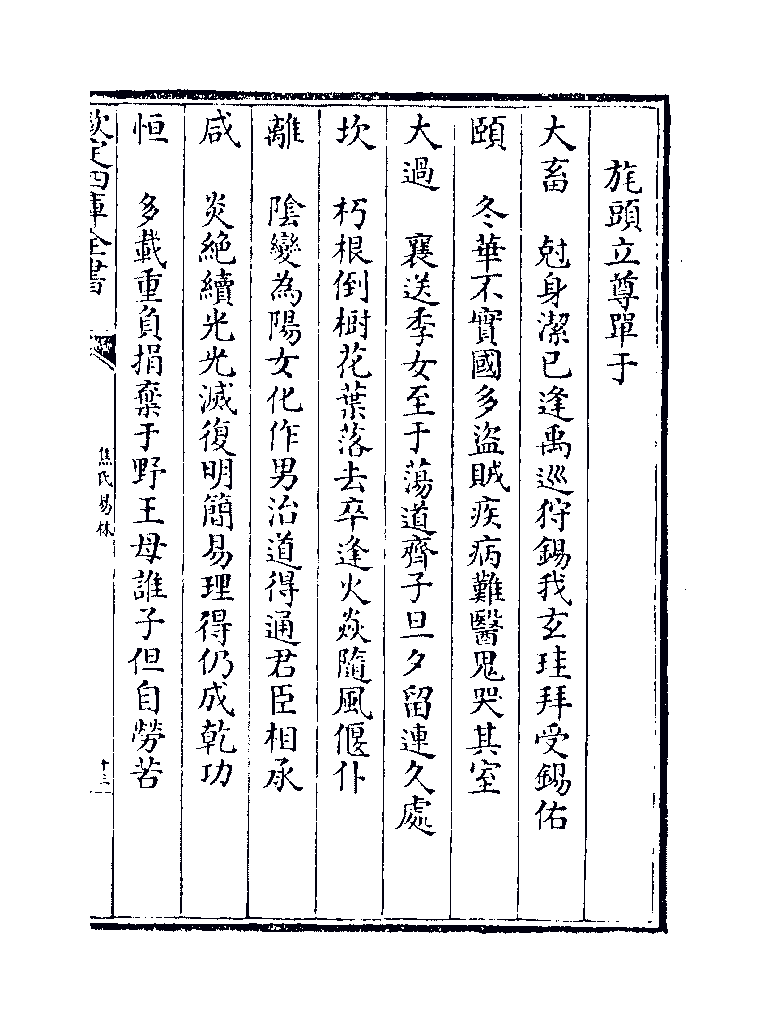 旄頭立尊單于
大畜　尅身潔已逢禹巡狩錫我玄珪拜受錫佑
頤　冬華不實國多盜賊疾病難醫鬼哭其室
大過　襄送季女至于蕩道齊子旦夕留連久處
坎　朽根倒樹花葉落去卒逢火焱隨風偃仆
離　陰變為陽女化作男治道得通君臣相承
咸　炎絶續光光滅復明簡易理得仍成乾功
恒　多載重負捐棄于野王母誰子但自勞苦
欽定四庫全書
焦氏易林
十三